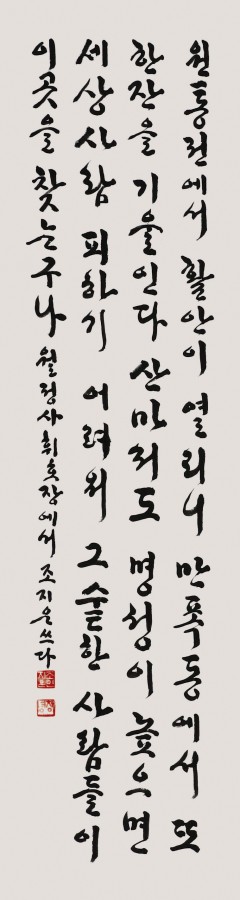 원통전에서 활안이 열리니 만폭동에서 또
한잔을 기울인다 산마저도 명성이 높으면
세상사람 피하기 어려워 그 숱한 사람들이
이곳을 찾는구나 월정사 휘호장에서 조지은 쓰다